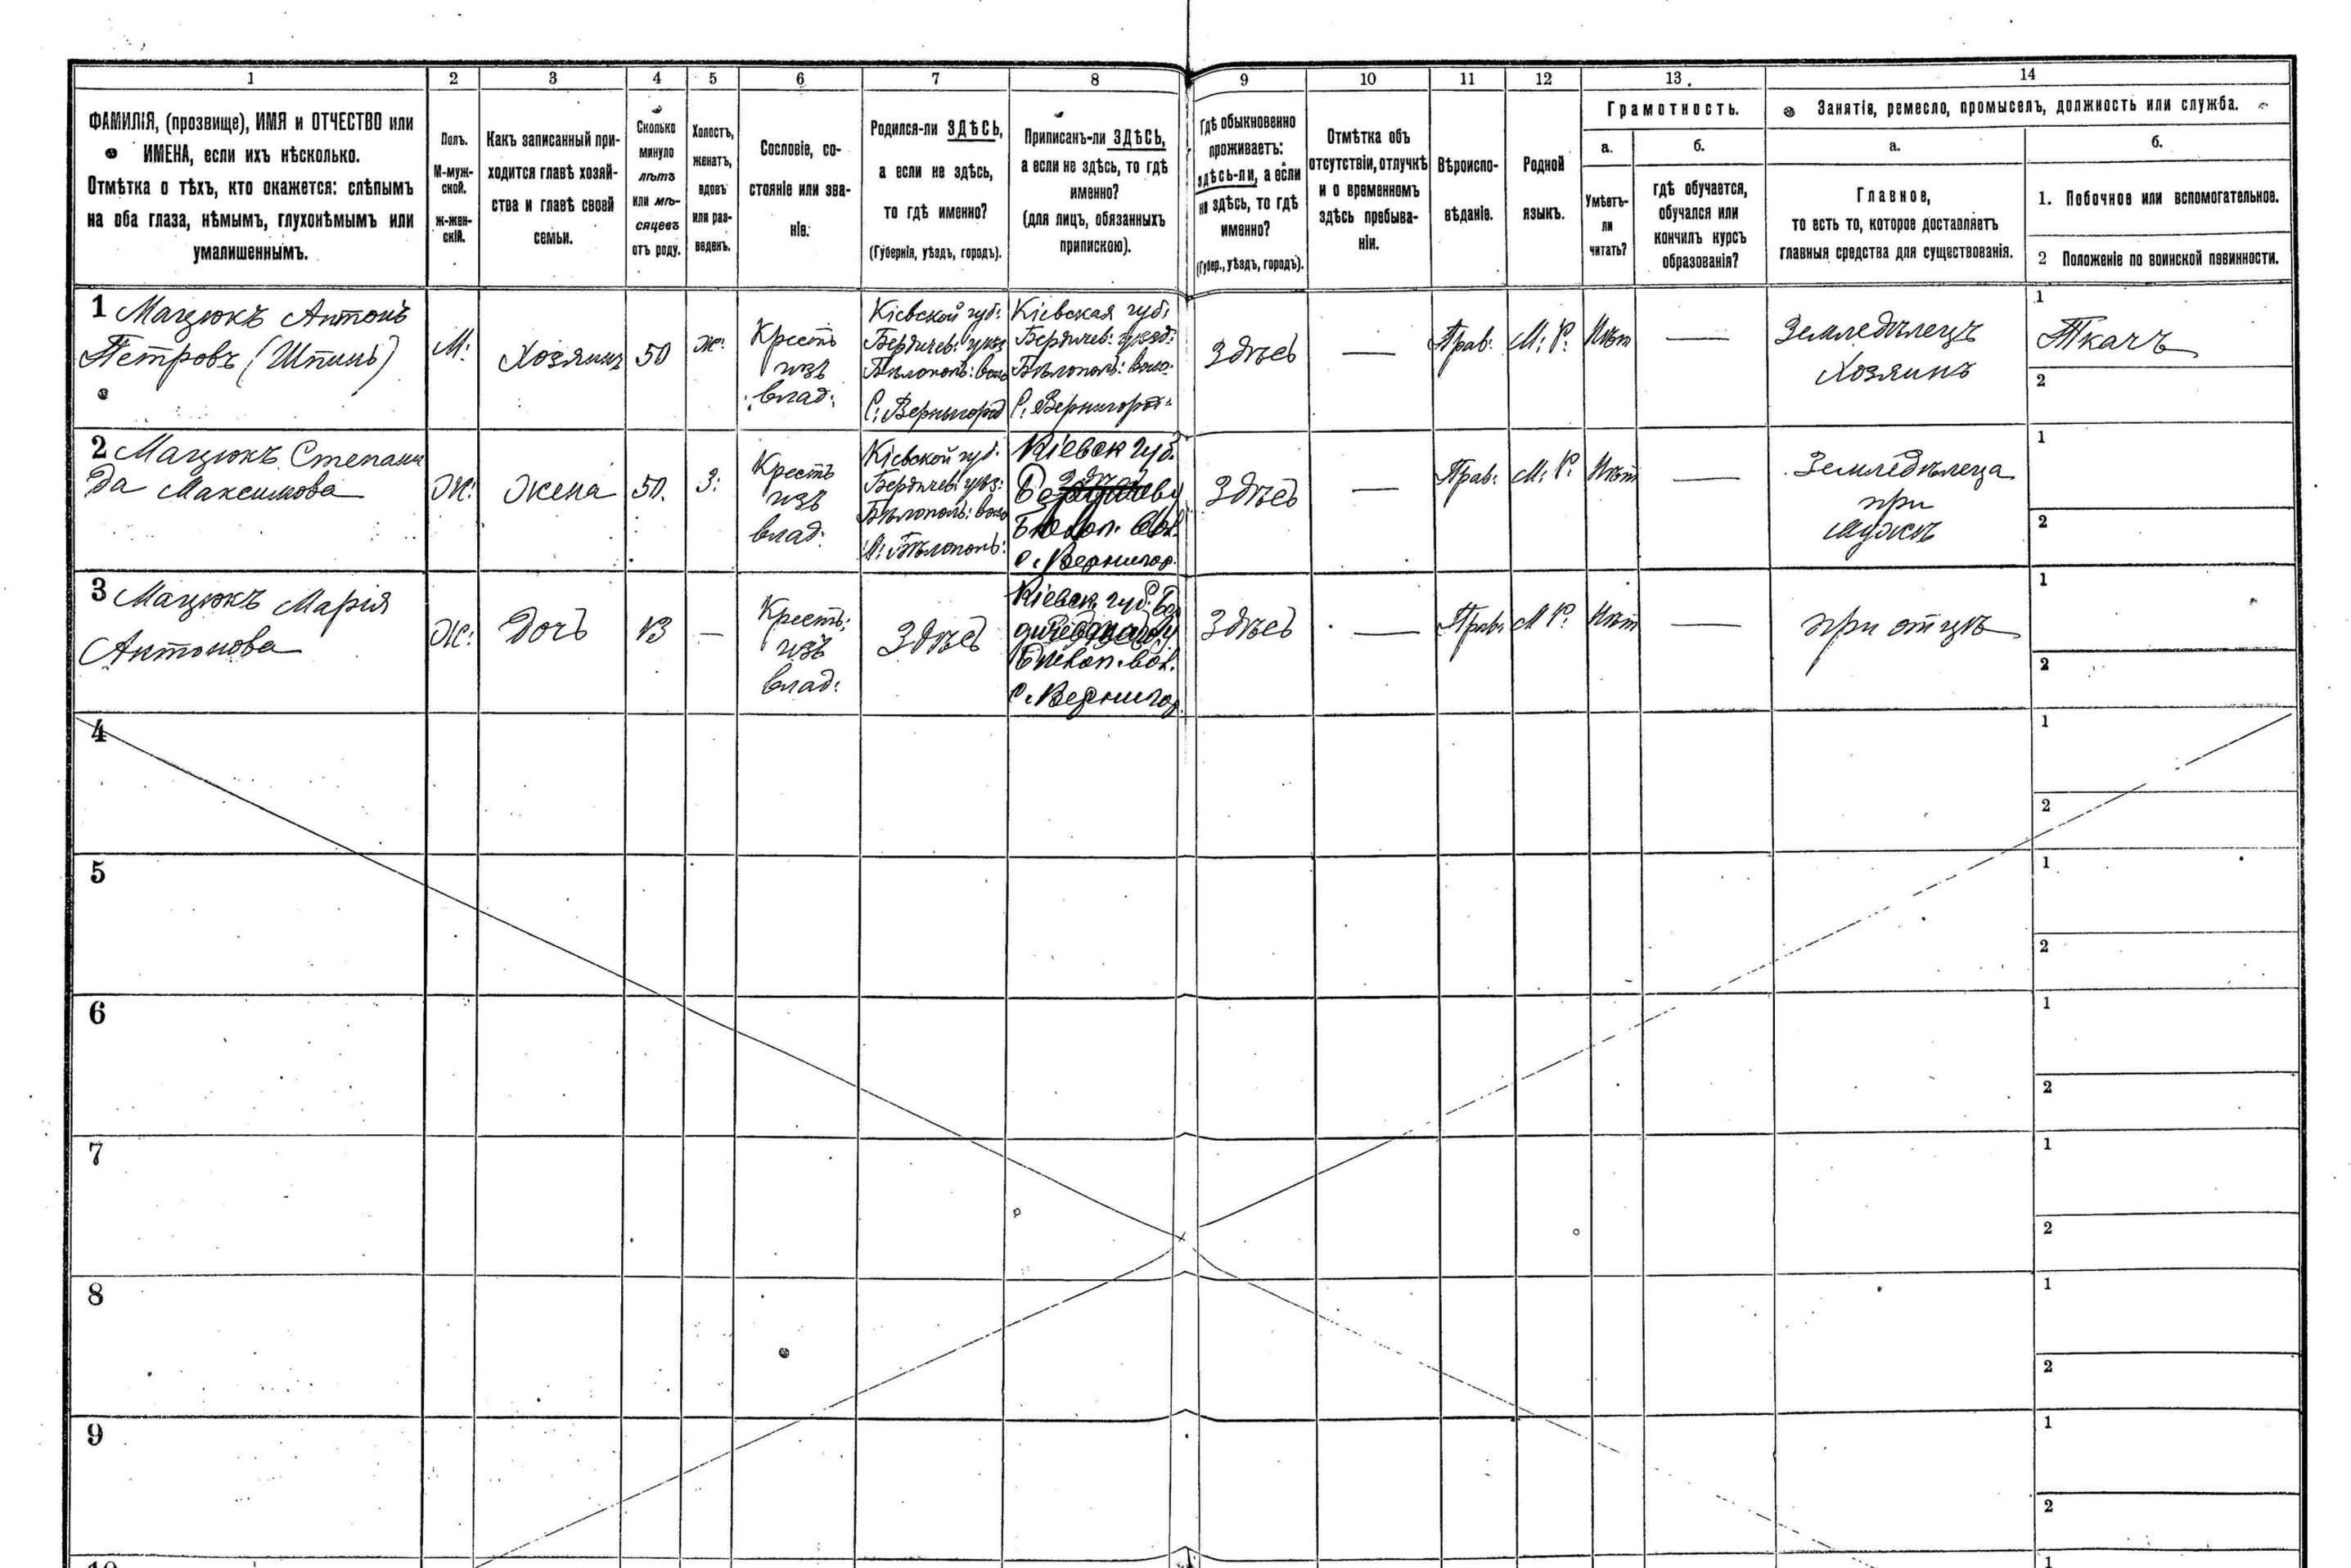 1 2 3 4 5 6 7 8 9 10 11 12 13. 14
ФАМИЛІЯ, (прозвище), ИМЯ и ОТЧЕСТВО или
ИМЕНА, если ихъ нѣсколько.
Отмѣтка о тѣхъ, кто окажется: слѣпымъ
на оба глаза, нѣмымъ, глухонѣмымъ или
умалишеннымъ.
Полъ.
М-муж-
ской.
ж-жен-
скій.
Какъ записанный при-
ходится главѣ хозяй-
ства и главѣ своей
семьи.
Сколько
минуло
лѣтъ
или мѣ-
сяцевъ
отъ роду.
Холостъ,
женатъ,
вдовъ
или раз-
веденъ.
Сословіе, со-
стояніе или зва-
ніе.
Родился-ли ЗДѢСЬ,
а если не здѣсь,
то гдѣ именно?
(Губернія, уѣздъ, городъ).
Приписанъ-ли ЗДѢСЬ,
а если не здѣсь, то гдѣ
именно?
(для лицъ, обязанныхъ
припискою).
Гдѣ обыкновенно
проживаетъ:
здѣсь-ли, а если
не здѣсь, то гдѣ
именно?
(Губер., уѣздъ, городъ).
Отмѣтка объ
отсутствіи, отлучкѣ
и о временномъ
здѣсь пребыва-
ніи.
Вѣроиспо-
вѣданіе.
Родной
языкъ.
Грамотность.
а.
Умѣетъ-
ли
читать?
б.
гдѣ обучается,
обучался или
кончилъ курсъ
образованія?
Занятія, ремесло, промыселъ, должность или служба.
а.
Главное,
то есть то, которое доставляетъ
главныя средства для существованія.
б.
1. Побочное или вспомогательное.
2 Положеніе по воинской повинности.
1 Мацюкъ Антонъ
Петровъ (Шпинь)
М:
Хозяинъ
50
ж:
Крестъ
изъ
влад:
Кіевской губ:
Бердичев: уѣз
Бѣлополь: воло
С: Вернигород
Кіевская губ:
Бердичев: уѣзд:
Бѣлополь: воло:
С. Вернигород:
Здѣсь
—
Прав:
М: Р:
Нѣт
—
Земледѣлецъ
Хозяинъ
1
Ткачъ
2
2 Мацюкъ Степани
да Максимова
Ж:
Жена
50.
З:
Крестъ
изъ
влад:
Кіевской губ:
Бердичев: уѣз:
Бѣлополь: воло
Кіевск губ.
с. Вернигор.
Здѣсь
—
Прав:
М: Р:
Нѣт
—
Земледѣлеца
при
мужѣ
1
2
3 Мацюкъ Марія
Антонова
Ж:
Дочь
13
—
Крестъ:
изъ
влад:
Здѣсь
Кіевск. губ. Бер
с. Вернигор
Здѣсь
—
Прав:
М Р:
Нѣт
—
при отцѣ
1
2
4
1
2
5
1
2
6
1
2
7
1
2
8
1
2
9
1
2
10
1